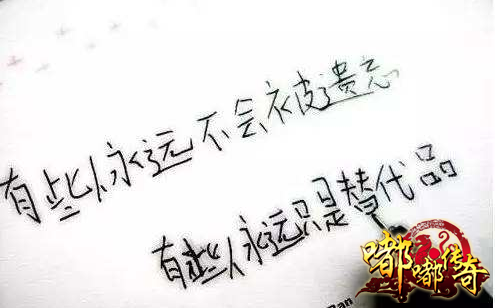 有些人永远不会被遗忘
有些人永远只是替代品
嘟嘟传奇